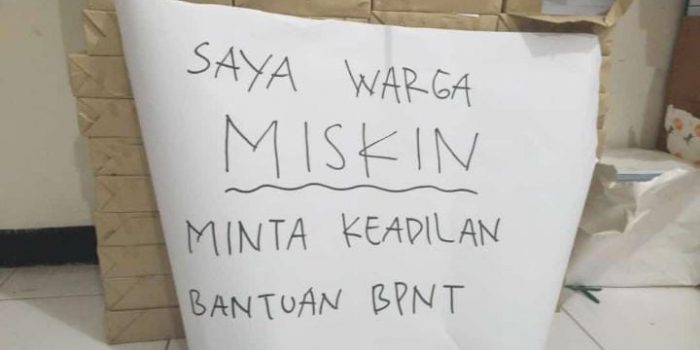 SAYA WARGA
MISKIN
MINTA KEADILAN
BANTUAN BPNT